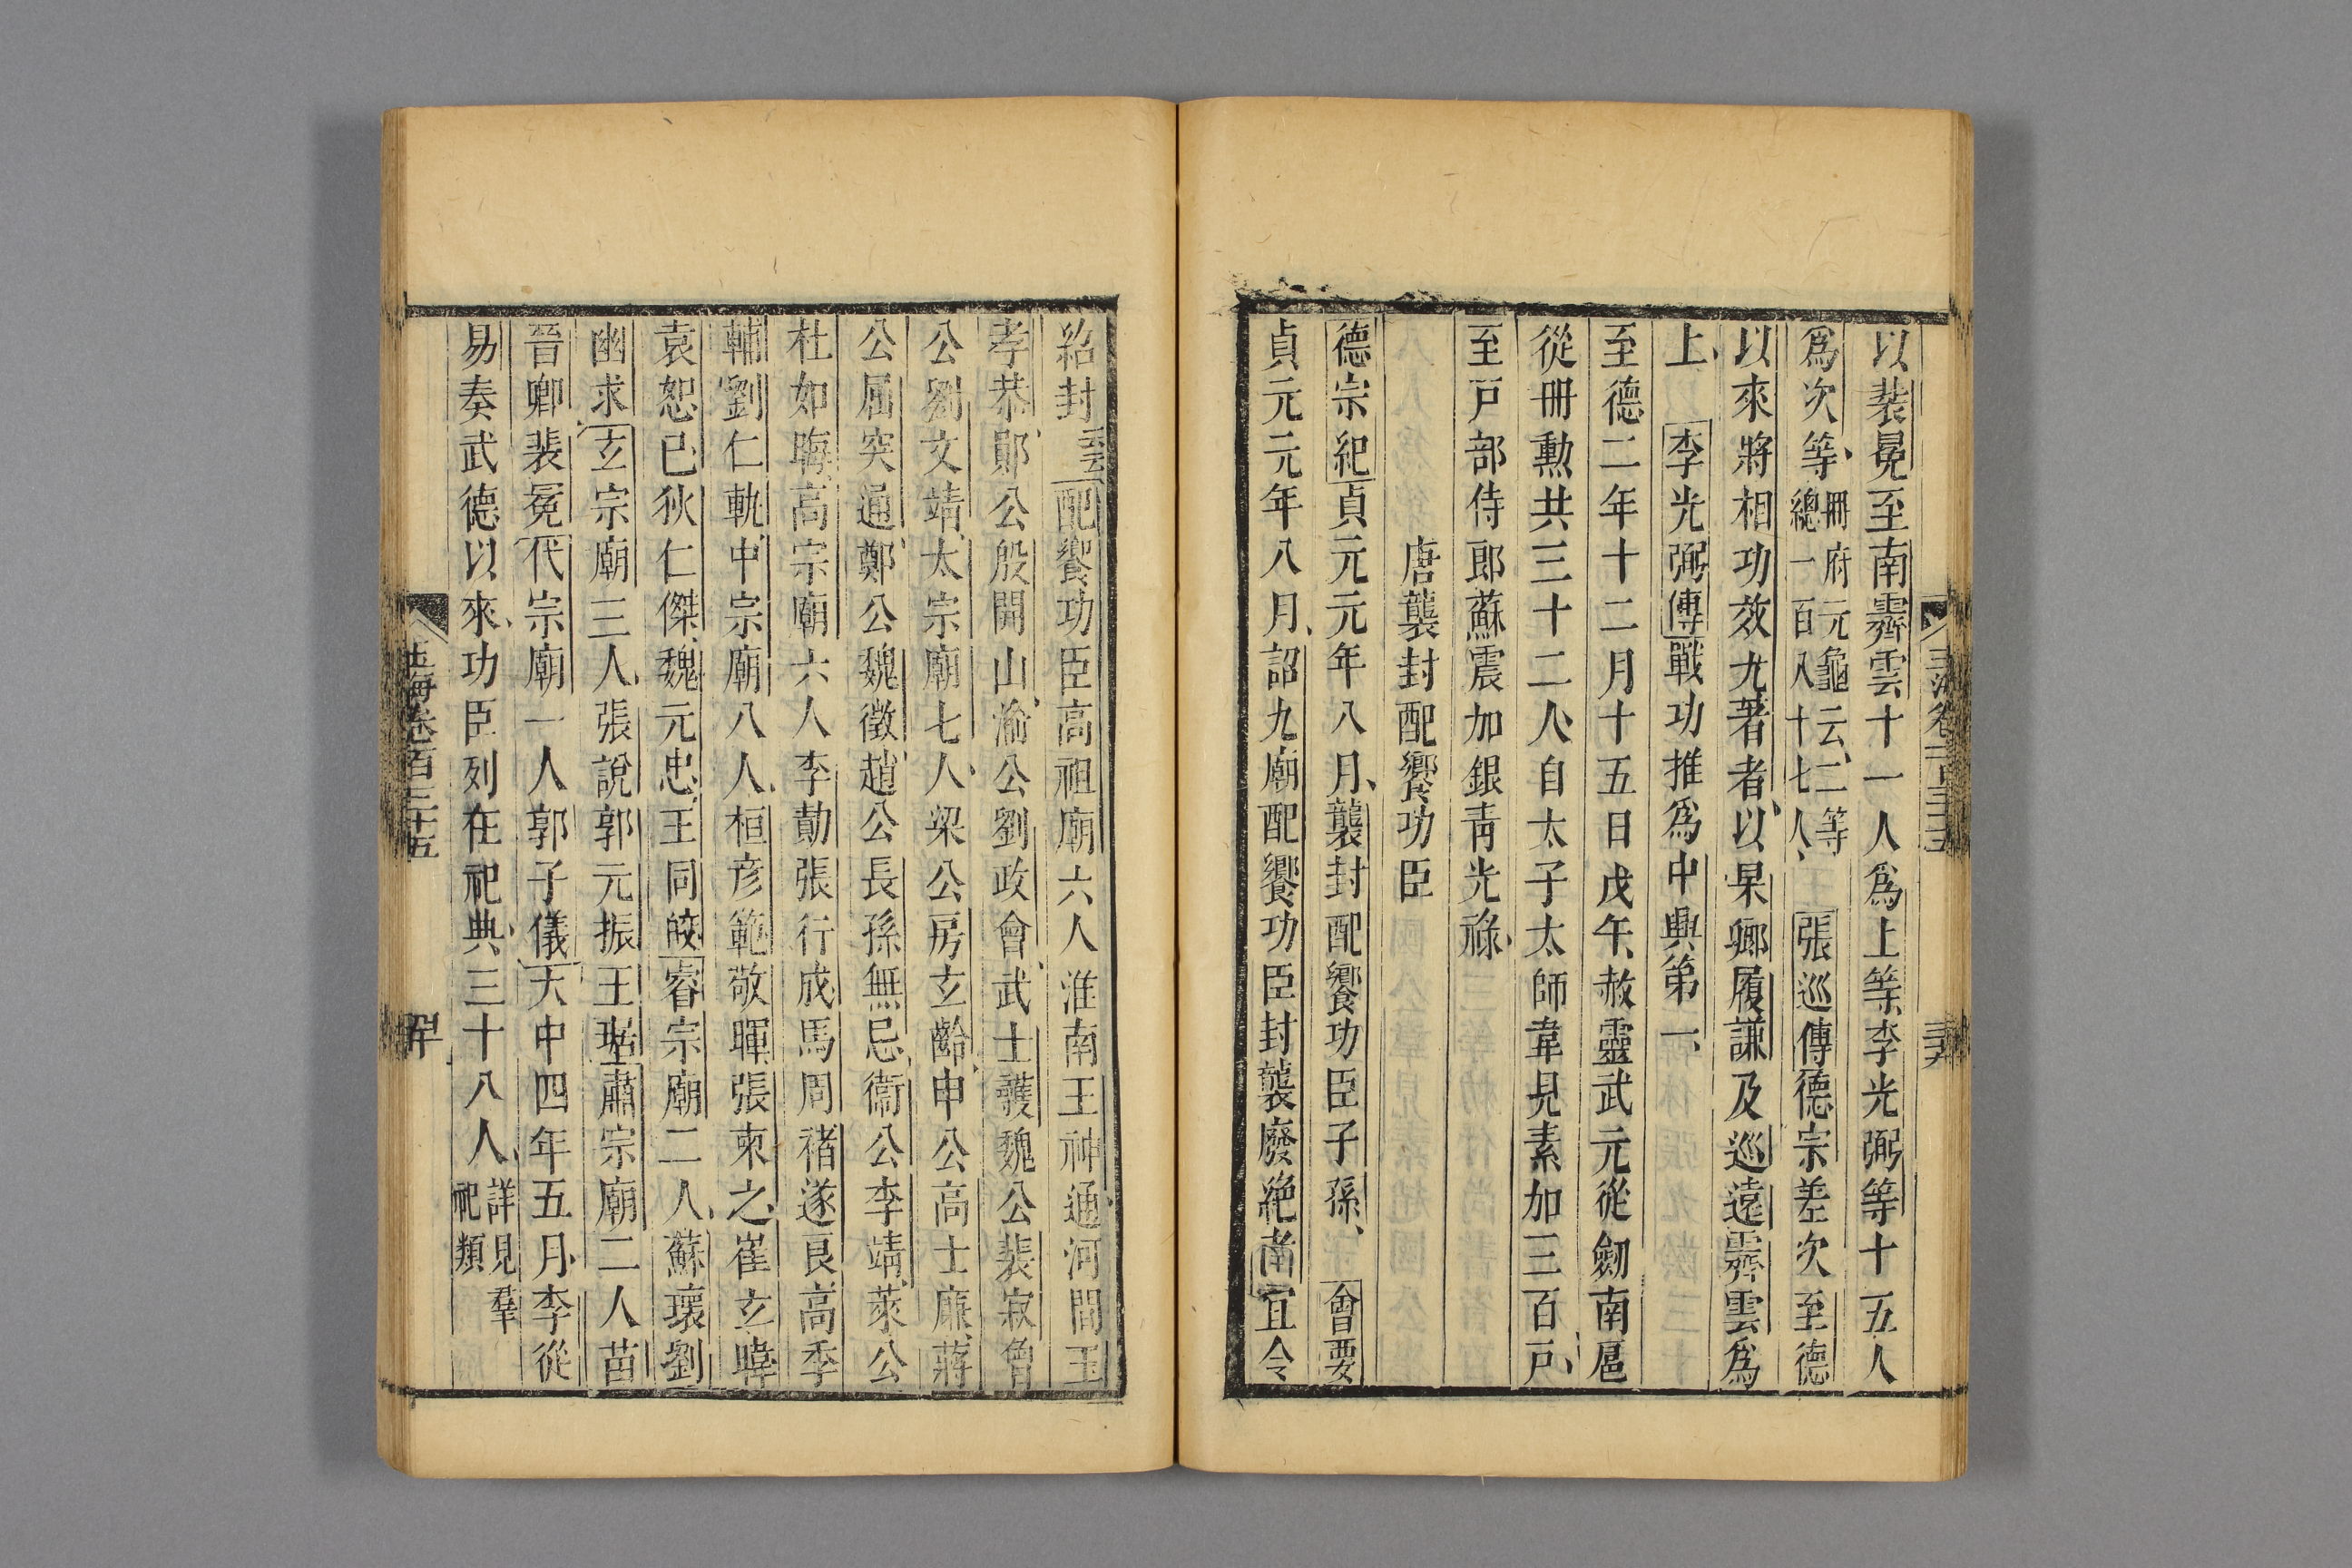 以裴冕至南霽雲十一人爲上等李光弼等十五人
爲次等冊府元龜云二等總一百八十七人張巡傳德宗差次至德
以來將相功效尤著者以杲卿履謙及巡遠霽雲爲
上 李光弼傳戰功推爲中興第一
至德二年十二月十五日戊午赦靈武元從劒南扈
從冊勳共三十二人自太子太師韋見素加三百戸
至戸部侍郎蘇震加銀青光祿
唐襲封配饗功臣
德宗紀貞元元年八月襲封配饗功臣子孫 會要
貞元元年八月詔九廟配饗功臣封襲廢絶者宜令
紹封 配饗功臣高祖廟六人淮南王神通河間王
孝恭鄖公殷開山渝公劉政會武士彠魏公裴寂魯
公劉文靖太宗廟七人梁公房玄齡申公高士廉蔣
公屈突通鄭公魏徵趙公長孫無忌衞公李靖萊公
杜如晦高宗廟六人李勣張行成馬周褚遂良高季
輔劉仁軌中宗廟八人桓彦範敬暉張柬之崔玄暐
袁恕已狄仁傑魏元忠王同皎睿宗廟二人蘇瓌劉
幽求玄宗廟三人張說郭元振王琚肅宗廟二人苗
晉卿裴冕代宗廟一人郭子儀大中四年五月李從
易奏武德以來功臣列在祀典三十八人詳見羣祀類
玉海卷百三十五